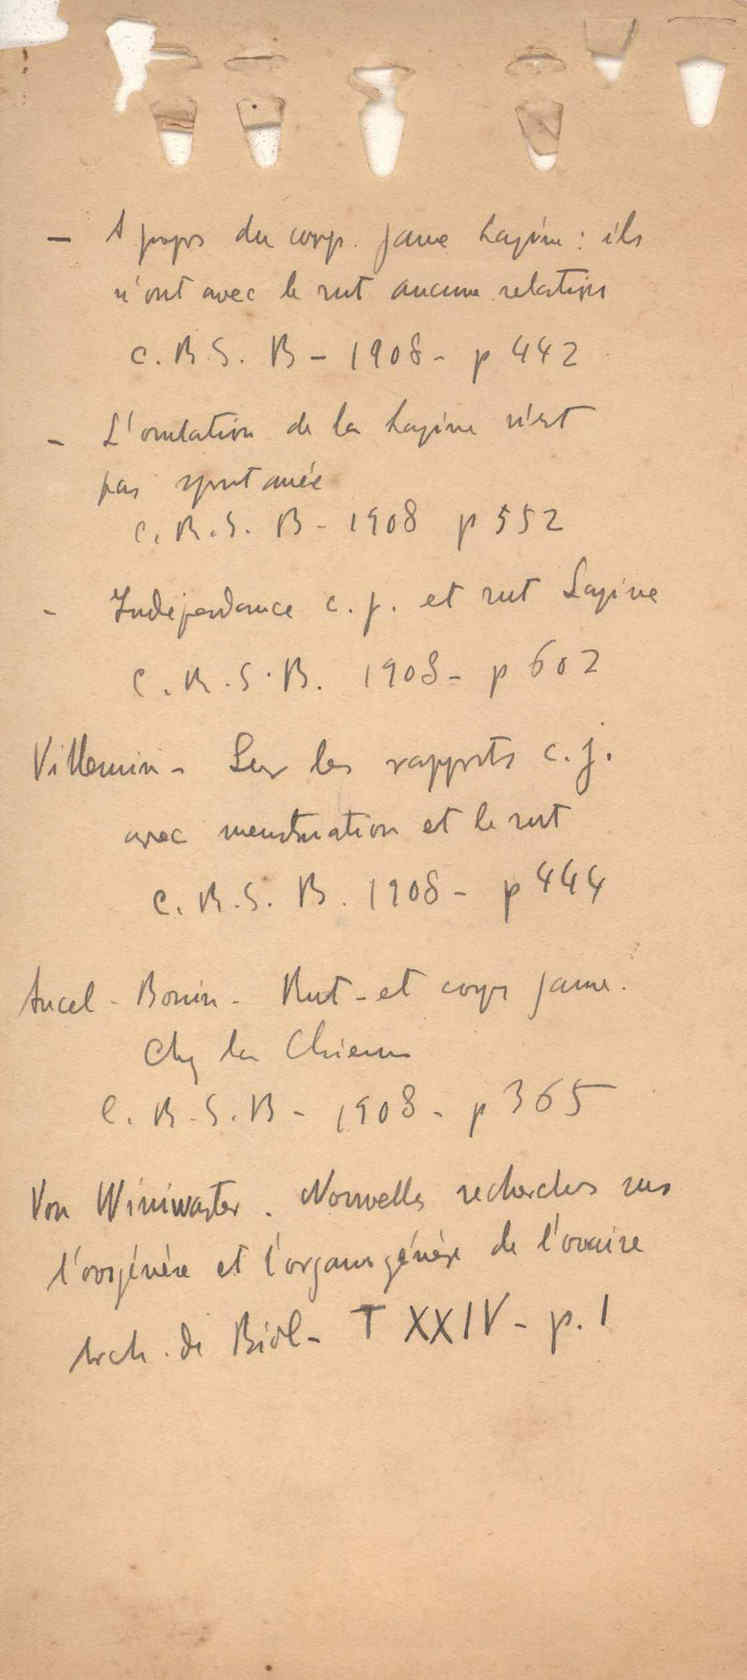 - A propos du corp. jaune Lapine : ils
n'ont avec le rut aucune relation
C. R. S. B - 1908 - p 442
- L'ovulation de la Lapine n'est
pas spontanée
C. R. S. B - 1908 p 552
- Indépendance c. j. et rut Lapine
C. R. S. B. 1908 - p 602
Villemin - Sur les rapports c. j.
avec menstruation et le rut
C. R. S. B. 1908 - p 444
Ancel - Bouin - Rut - et corps jaune.
Chez la Chienne
C. R. S. B - 1908 - p 365
Von Winiwarter. Nouvelles recherches sur
l'ovogénèse et l'organogénèse de l'ovaire
Arch. de Biol - T XXIV - p. 1